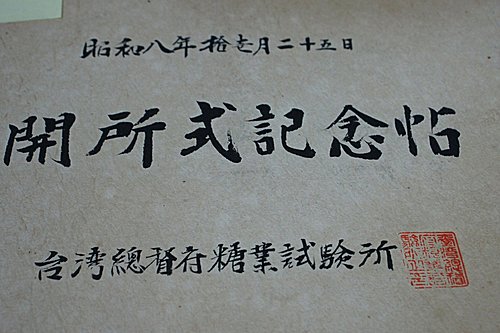 昭和八年拾壱月二十五日
開所式記念帖
台湾總督府糖業試験所